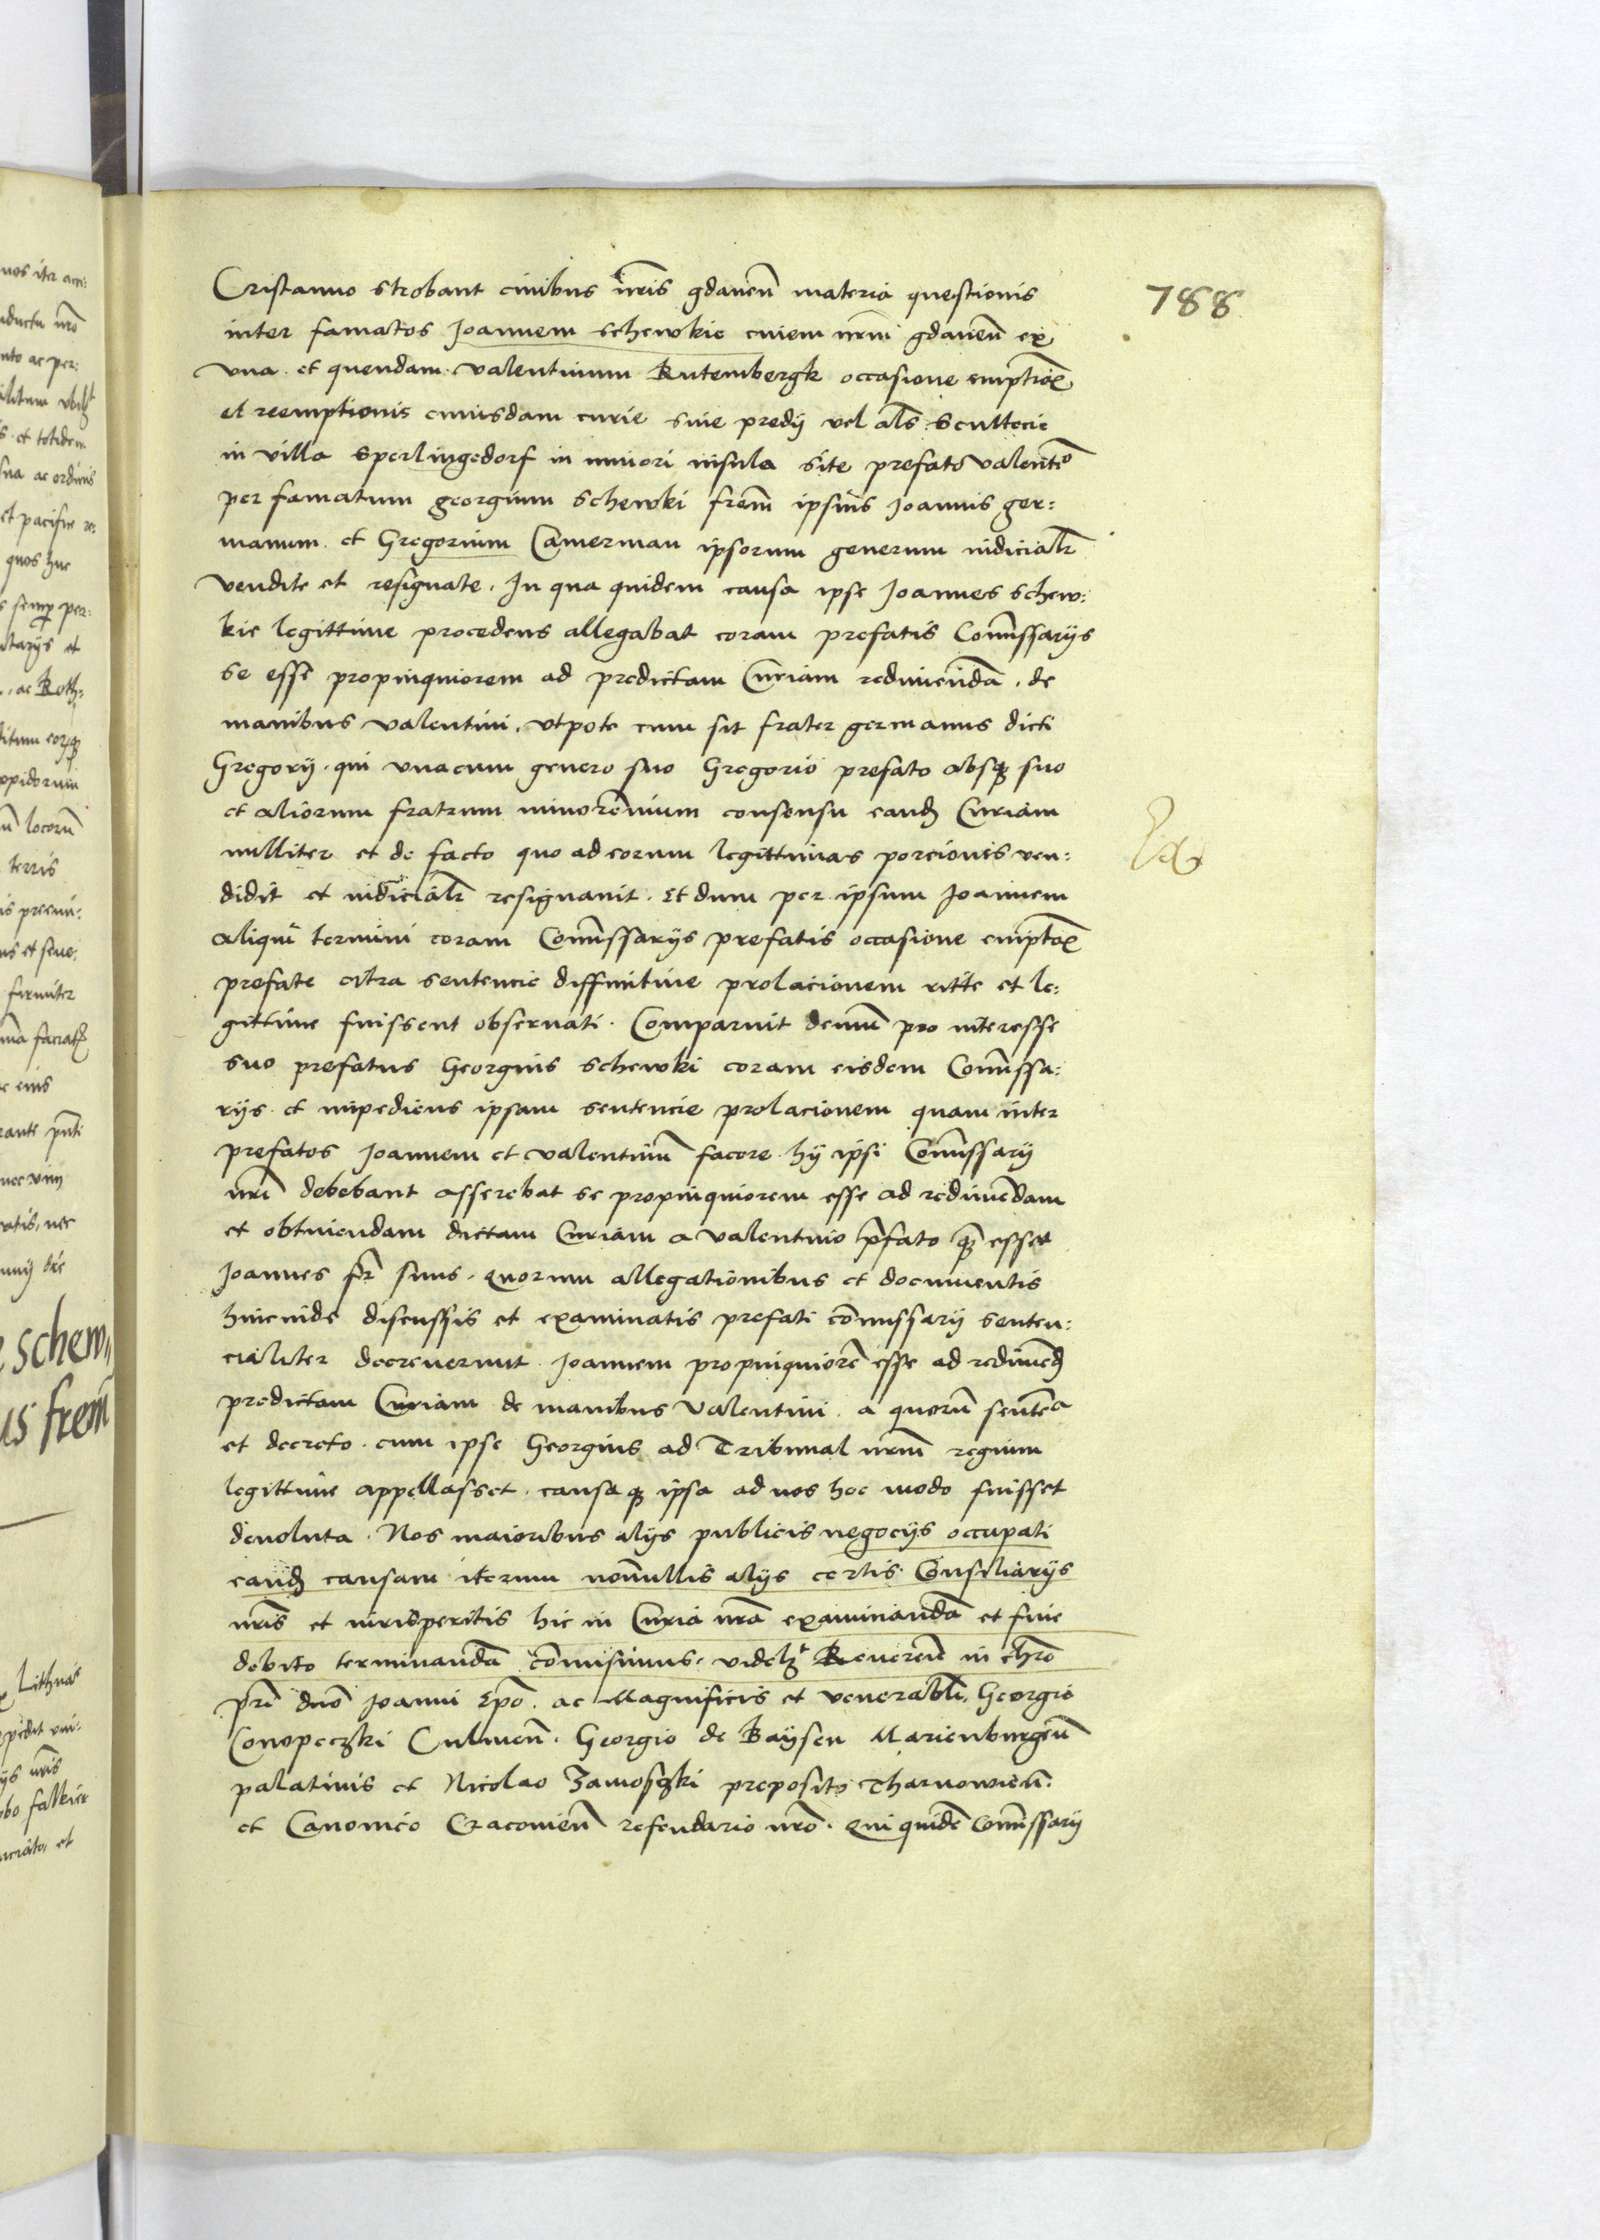 788
Cristanno strobant ciuibus nr̃is gdaneñ materia questionis
inter famatos Joannem schewkie ciuem nrm̃ gdaneñ ex
vna et quendam valentinum Rutembergk occasione emptiõis
et reemptionis cuiusdam curie siue predij vel als̃ scultecie
in villa sperlingsdorf in minori insula site prefato valentiº
per famatum georgium schewki frem̃ ipsius Joannis ger:
manum et Gregorium Camerman ipsorum generum iudicialr̃
vendite et resignate. In qua quidem causa ipse Joannes schew:
kie legittime procedens allegabat coram prefatis Com̃issarijs
se esse propinquiorem ad predictam Curiam redimendã. de
manibus valentini. vtpote cum sit frater germanus dicti
Gregorij. qui vnacum genero suo Gregorio prefato absq3 suo
et aliorum fratrum minorẽnium consensu eand Curiam
nulliter et de facto quo ad eorum legittimas porcionis ven:
didit et iudicialr̃ resignauit. Et dum per ipsum Joannem
aliqui termini coram Com̃issarijs prefatis occasione empcõis
prefate citra sentencie diffinitiue prolacionem ritte et le:
gittime fuissent obseruati. Comparuit demũ pro interesse
suo prefatus Georgius schewki coram eisdem Com̃issa:
rijs. et impediens ipsam sentencie prolacionem quam inter
prefatos Joannem et valentinũ facere hij ipsi Com̃issarij
nr̃i debebant asserebat se propinquiorem esse ad redimẽdam
et obtinendam dictam Curiam a valentino p̃fato q̃3 esset
Joannes fr̃ suus. quorum allegationibus et documentis
hincinde discussis et examinatis prefati com̃issarij senten:
cialiter decreuerunt Joannem propinquiorẽ esse ad redimend
predictam Curiam de manibus Valentini. a quorũ sentẽª
et decreto. cum ipse Georgius ad Tribunal nrm̃ regium
legittime appellasset. causaq3 ipsa ad nos hoc modo fuisset
deuoluta. Nos maioribus alijs publicis negocijs occupati
eand causam iterum nonnullis alijs certis Consiliarijs
nr̃is et iurisperitis hic in Curia nr̃a examinandã et fine
debito terminandã com̃isimus. videlz Reuereñ in chrõ
pr̃i dnõ Joanni Ep̃o. ac Magnificis et venerabli. Georgio
Conopeczki Culmeñ. Georgio de Baysen Marienburgeñ
palatinis et Nicolao Zamoszki preposito Tharnowieñ.
et Canonico Cracouieñ referendario nr̃o. Qui quidẽ Com̃issarij